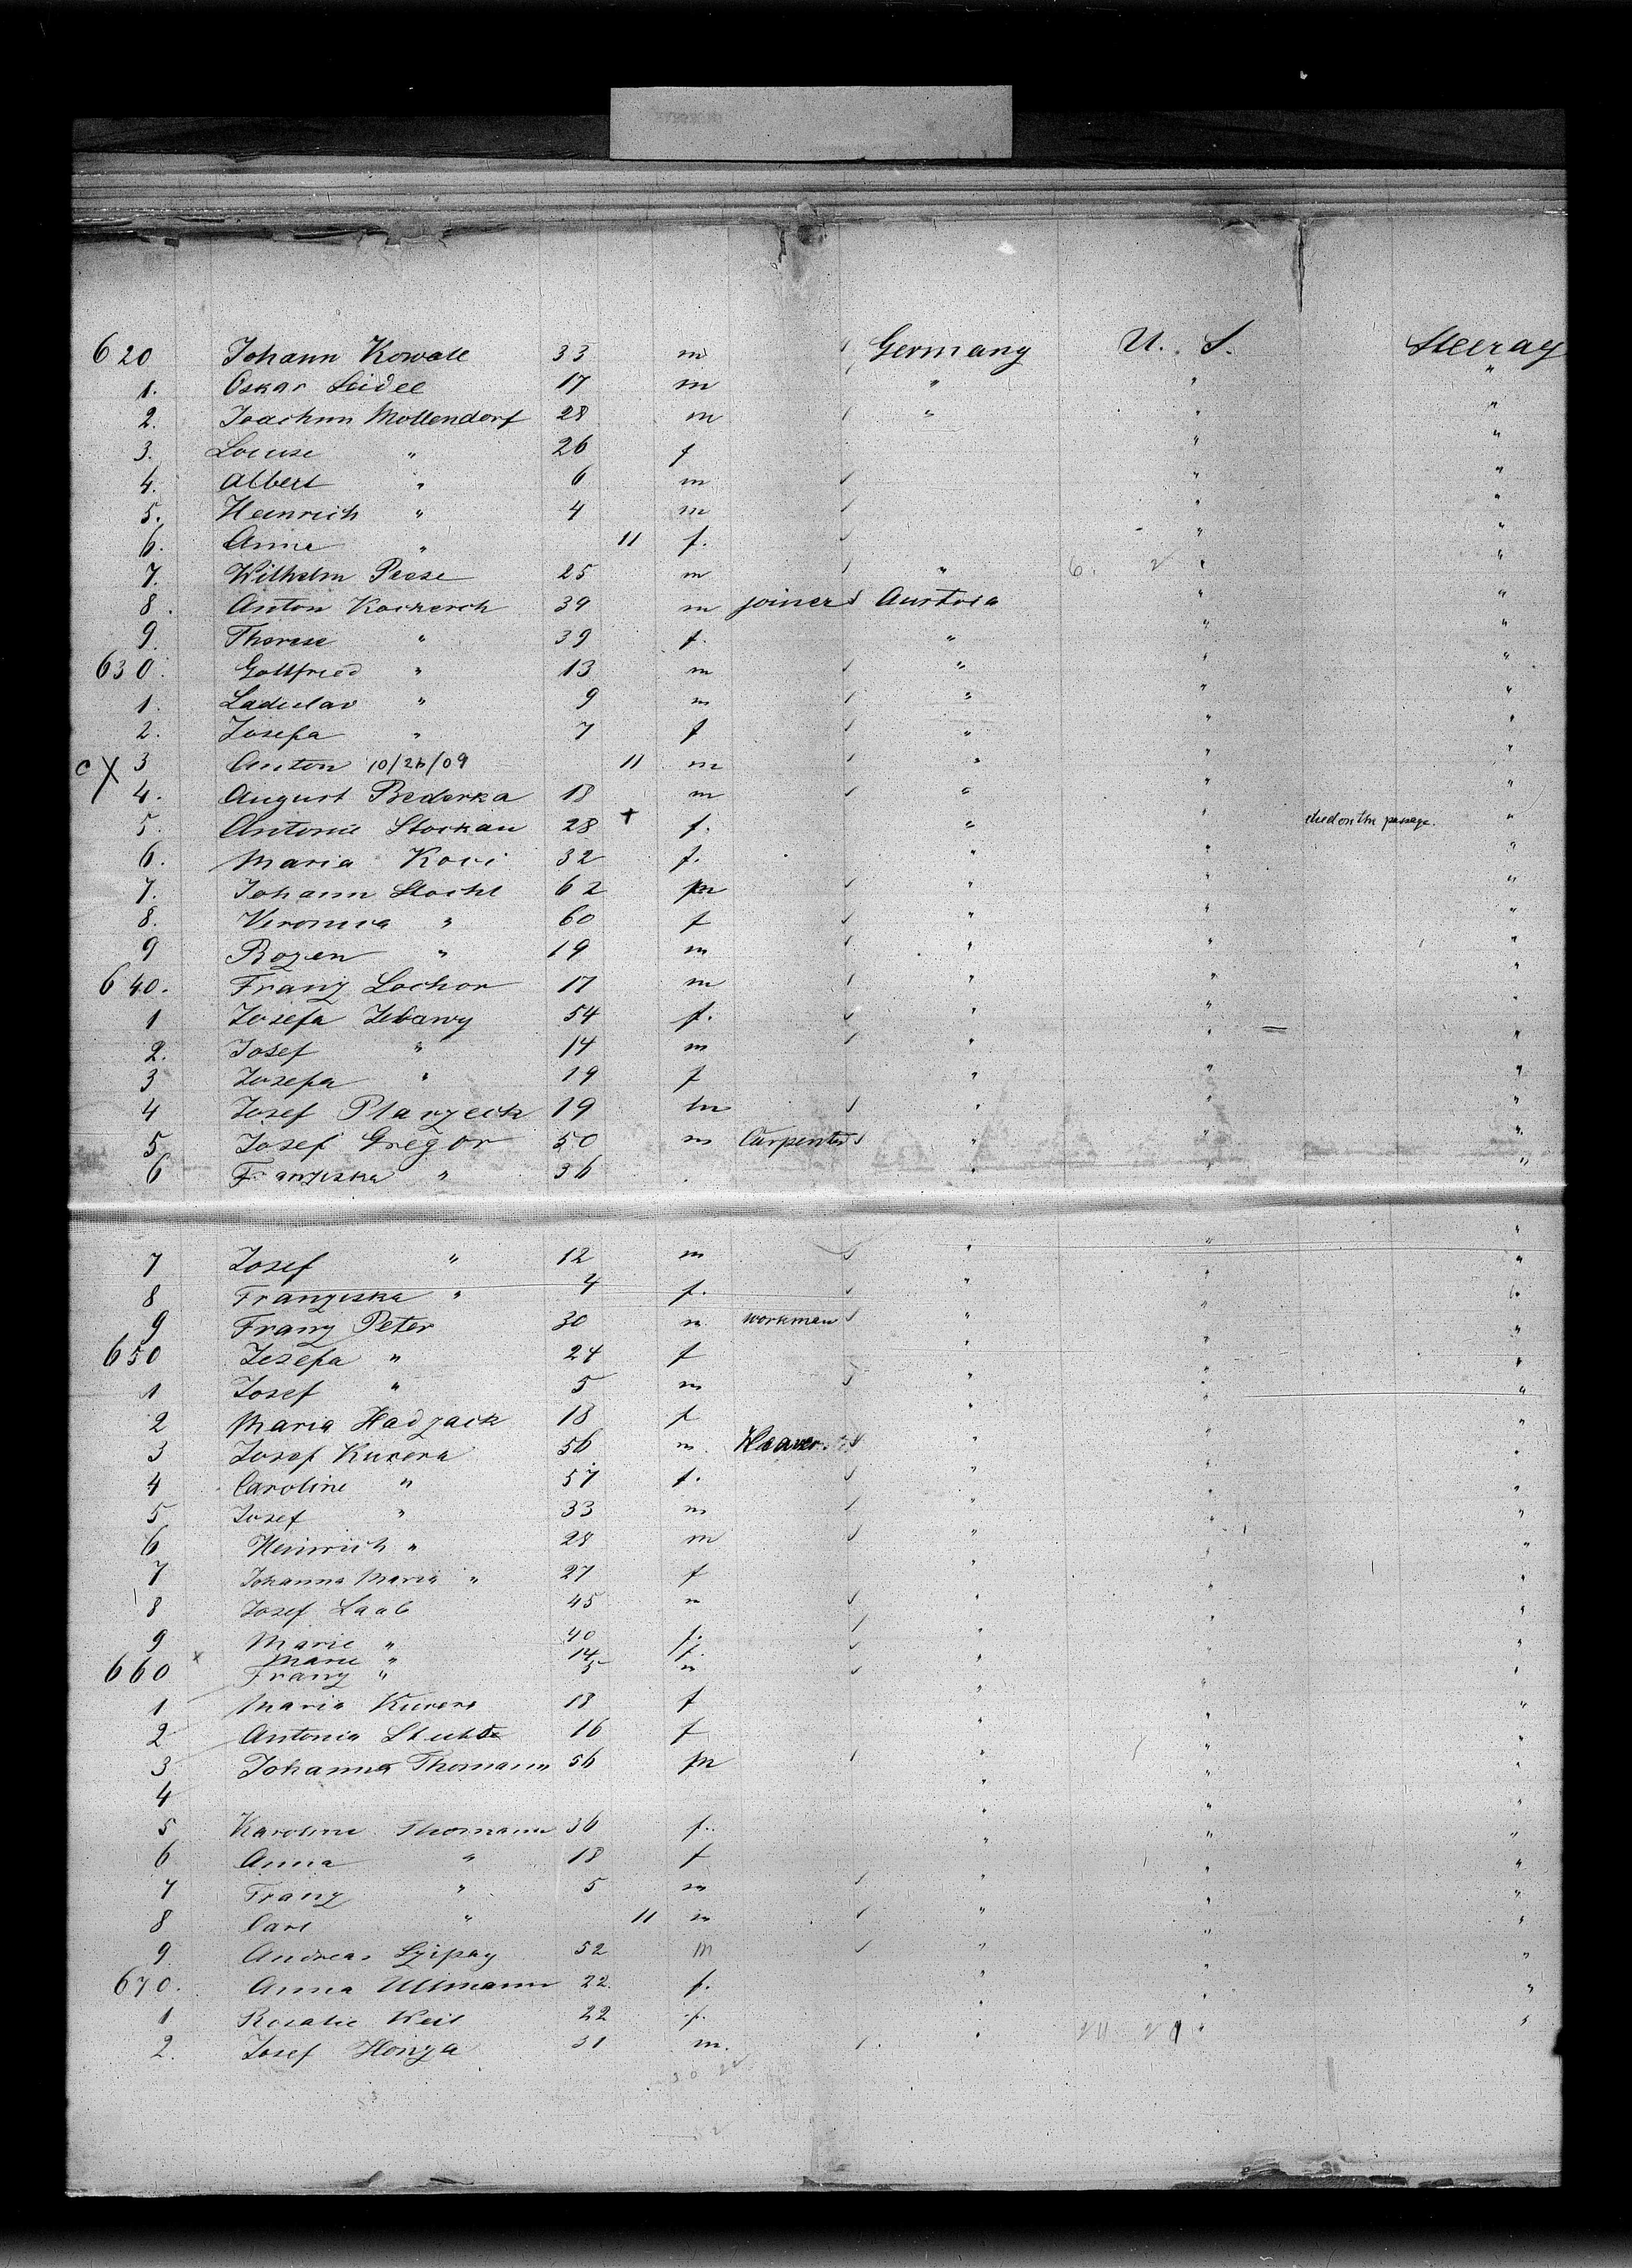 620 Johann Kowall 33 m Germany U. S. Steerag
1. Oskar Seidel 17 m " " "
2. Joachim Mollendorf 28 m " " "
3. Louise " 26 f " "
4. Albert " 6 m " "
5. Heinrich " 4 m " "
6. Anna " 11 f. " "
7. Wilhelm Peese 25 m " 6. 2 " "
8. Anton Kockerch 39 m joiner Austria " "
9. Therese " 39 f. " " "
630. Gottfried " 13 m " " "
1. Ladislav " 9 m " " "
2. Josefa " 7 f " " "
c X 3 Anton 10/26/09 11 m " " "
4. August Bederka 18 m " " "
5. Antonie Stockau 28 + f. " " died on the passage. "
6. Maria Kovi 32 f. " " "
7. Johann Stochl 62 m " " "
8. Veronica " 60 f " " "
9 Bozen " 19 m " " "
640. Franz Lochor 17 m " " "
1 Josefa Zebawy 54 f. " " "
2. Josef " 14 m " " "
3 Josefa " 19 f " " "
4 Josef Planzeck 19 m " " "
5 Josef Gregor 50 m Carpenter " " "
6 Franziska " 36 " " "
7 Josef " 12 m " " "
8 Franziska " 4 f. " " "
9 Franz Peter 30 m workman " " "
650 Josefa " 24 f " " "
1 Josef " 5 m " " "
2 Maria Hadzack 18 f " " "
3 Josef Kucera 56 m. Weaver " " "
4 Caroline " 57 f. " " "
5 Josef " 33 m " " "
6 Heinrich " 28 m " " "
7 Johanna Maria " 27 f " " "
8 Josef Laab 45 m " " "
9 Marie " 40 f. " " "
x Marie " 14 f.
660 Franz " 5 m " " "
1 Maria Kucera 18 f " " "
2 Antonia 16 f " " "
3 Johanna Thomann 56 m " " "
4 " " "
5 Karoline Thomann 36 f. " " "
6 Anna " 18 f " " "
7 Franz " 5 m " " "
8 Carl " 11 m " " "
9. Andreas Szipay 52 m " " "
670. Anna Ullmann 22. f. " " "
1 Rosalie Weil 22 f. " " "
2. Josef Honza 31 m. " "